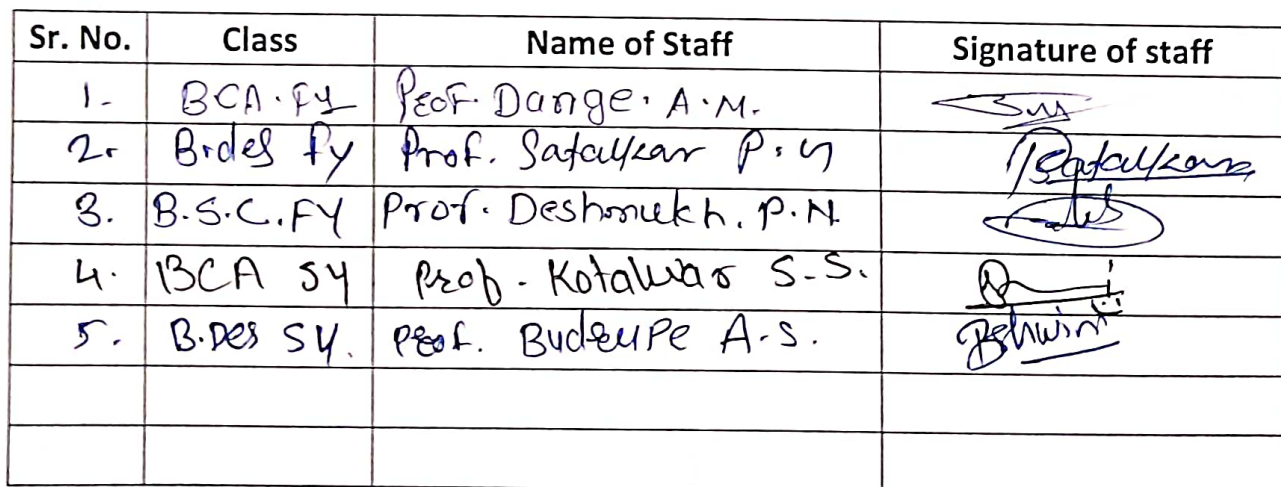 Sr. No. Class Name of Staff Signature of staff
1. BCA. FY Prof. Dange. A.M.
2. B.des fy Prof. Satalkar P. G Psatalkar
3. B.S.C. FY Prof. Deshmukh. P.N
4. BCA SY Prof. Kotalwar S.S.
5. B.Des SY. Prof. Budrupe A.S. Ashwini